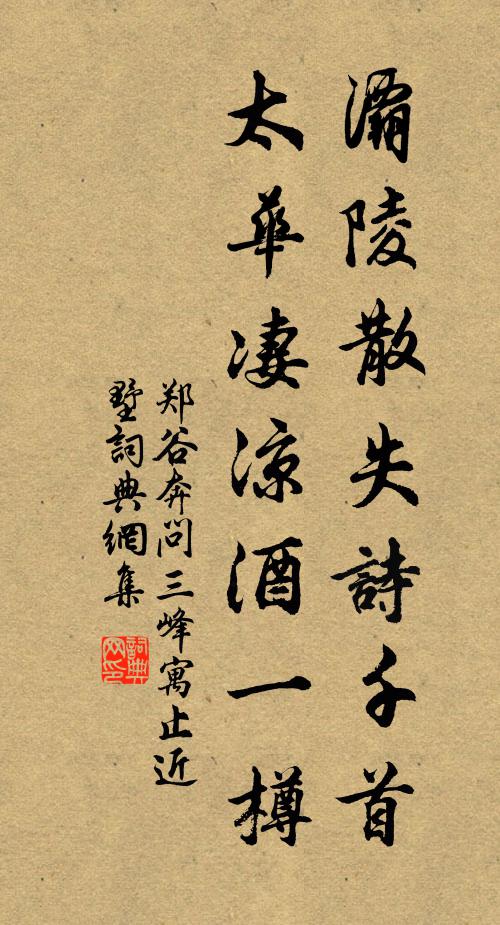 灞陵散失詩千首
太華凄涼酒一樽
郑谷奔問三峰寓止近
墅詞典網集
詞典网印